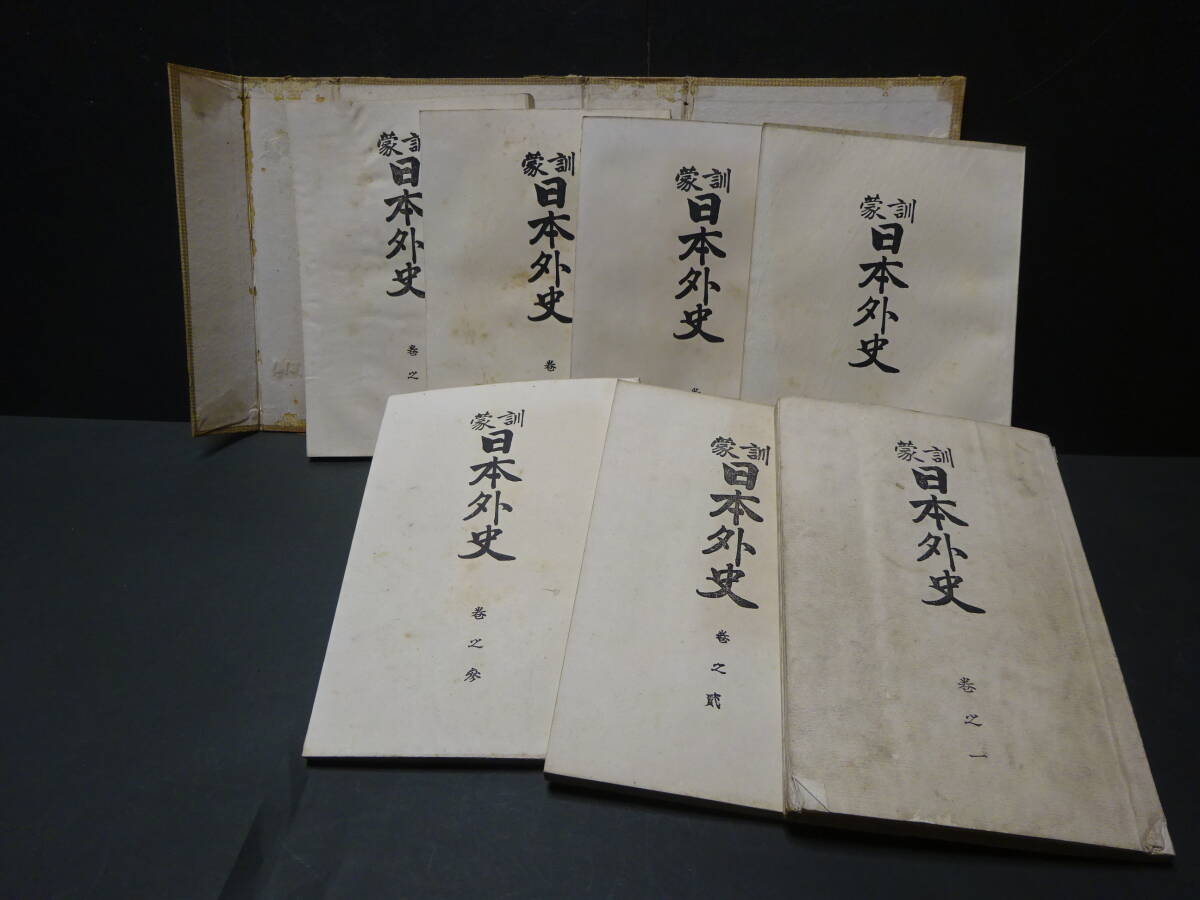 訓蒙
日本外史
訓蒙
日本外史
訓蒙
日本外史
卷
訓蒙
日本外史
卷之
訓蒙
日本外史
卷之一
訓蒙
日本外史
卷之貳
訓蒙
日本外史
卷之參